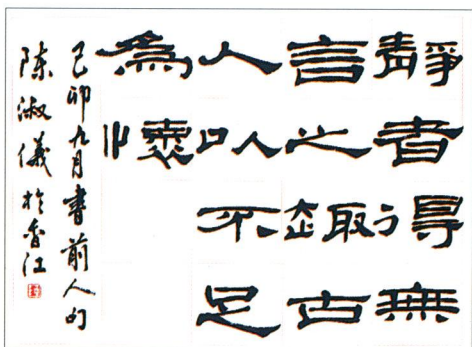 靜者得無
言之趣古
人以不足
為懷
己卯九月書前人句
陳淑儀於香江